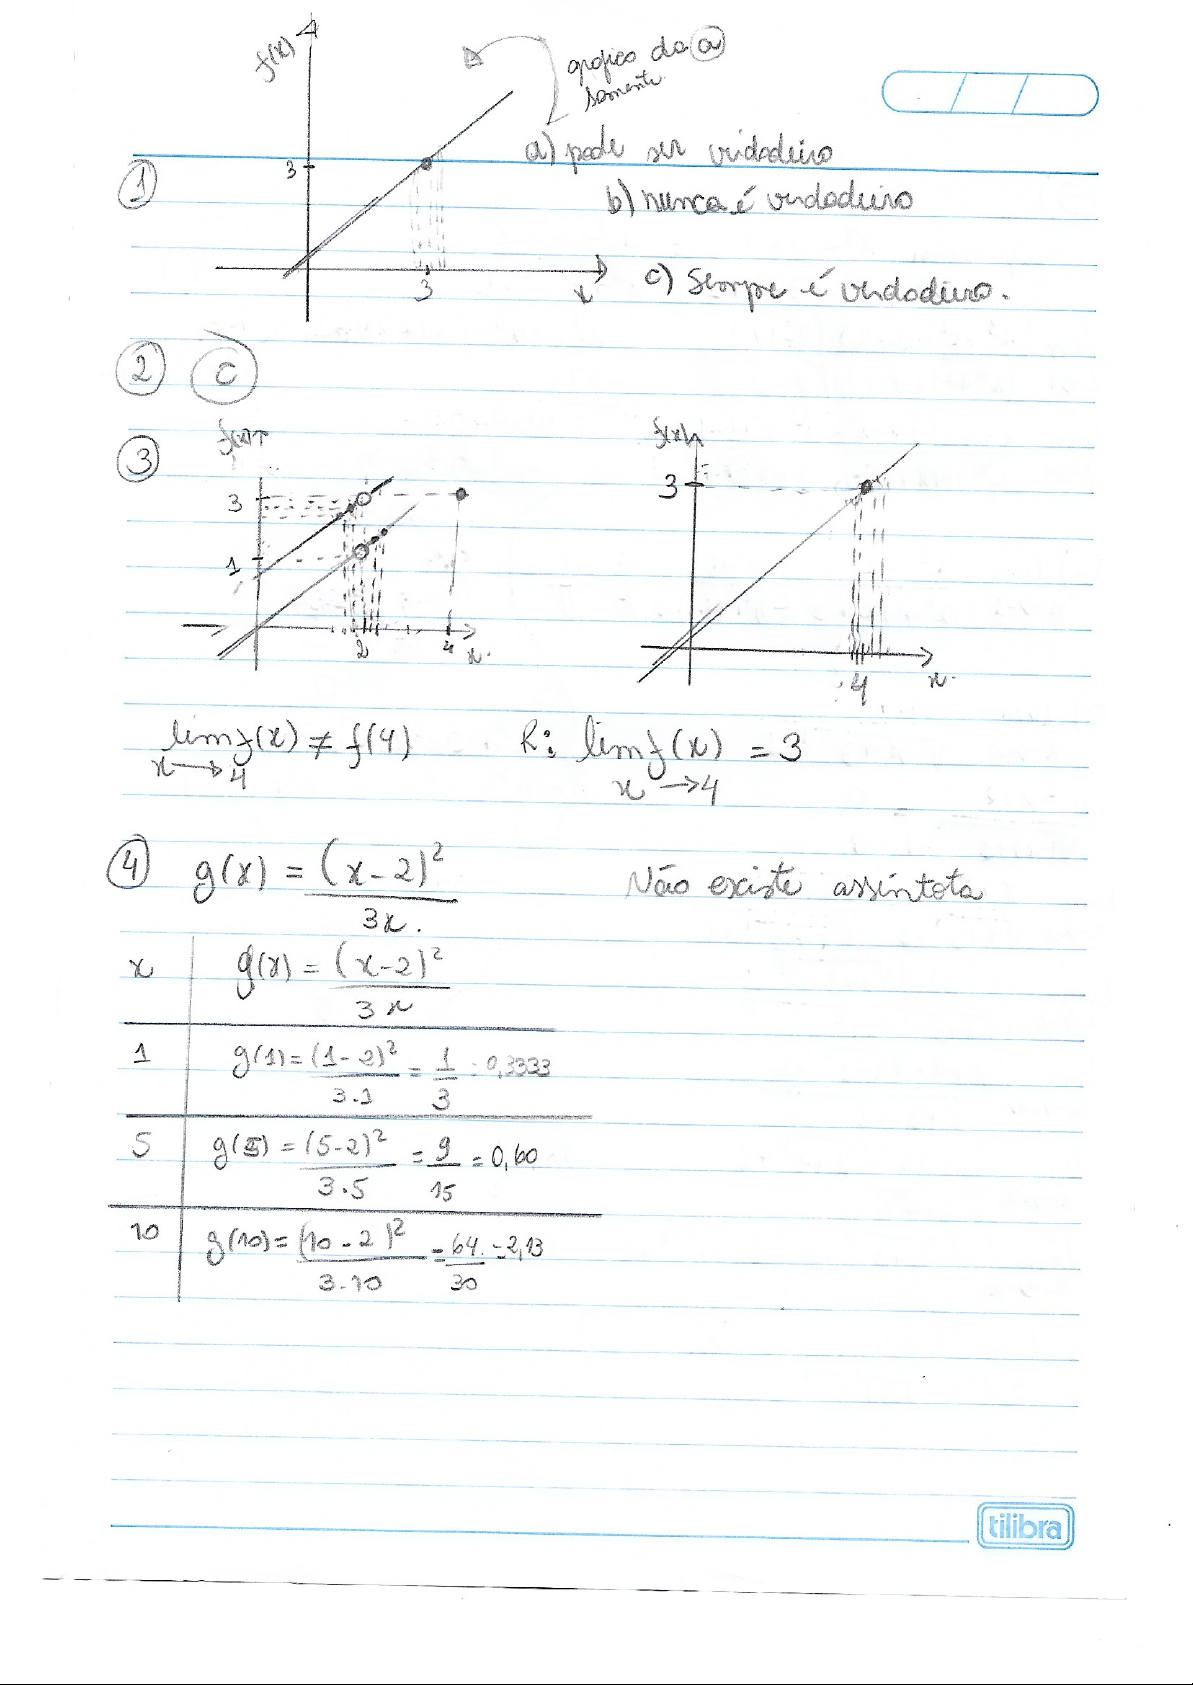 f(x)
gráfico da a
somente
a) pode ser verdadeiro
3
1
b) nunca é verdadeiro
c) Sempre é verdadeiro.
3
x
2 C
3
f(x)
3
1
2
4
x
f(x)
3
4
x
lim f(x) ≠ f(4)
x→4
R: lim f(x) = 3
x→4
4 g(x) = (x-2)²
3x.
Não existe assíntota
x g(x) = (x-2)²
3x
1 g(1) = (1-2)² = 1 = 0,3333
3.1 3
5 g(5) = (5-2)² = 9 = 0,60
3.5 15
10 g(10) = (10-2)² = 64 = 2,13
3.10 30
tilibra